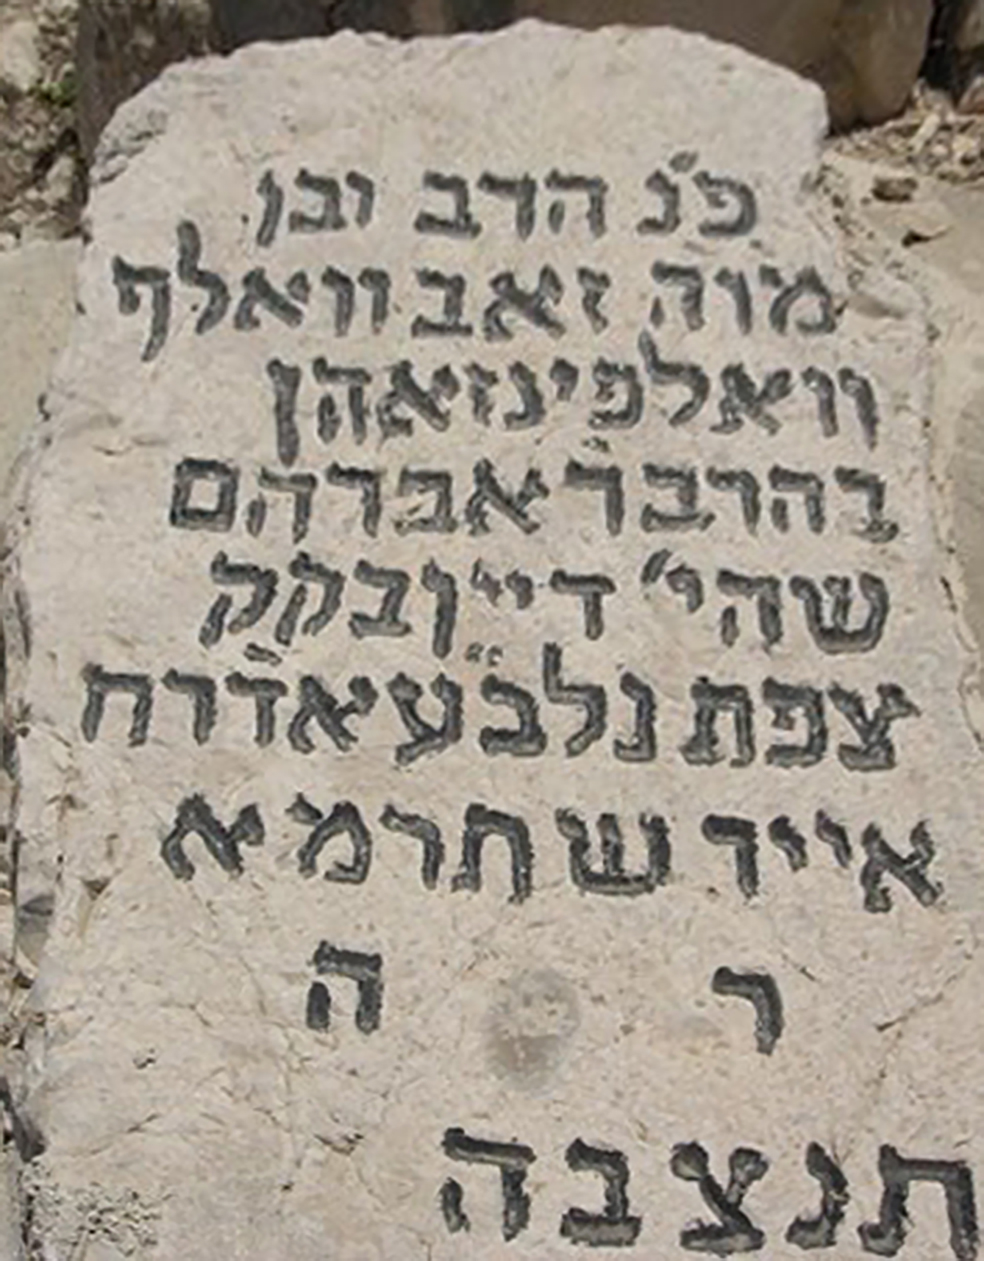 פ״נ הרב ובן
מוה זאב וואלף
וואלפינזאהן
בהרבר אברהם
שהי׳ דיין בקק
צפת נלב״ע יא אדר ח
אייר שתרמא
ר ה
תנצבה